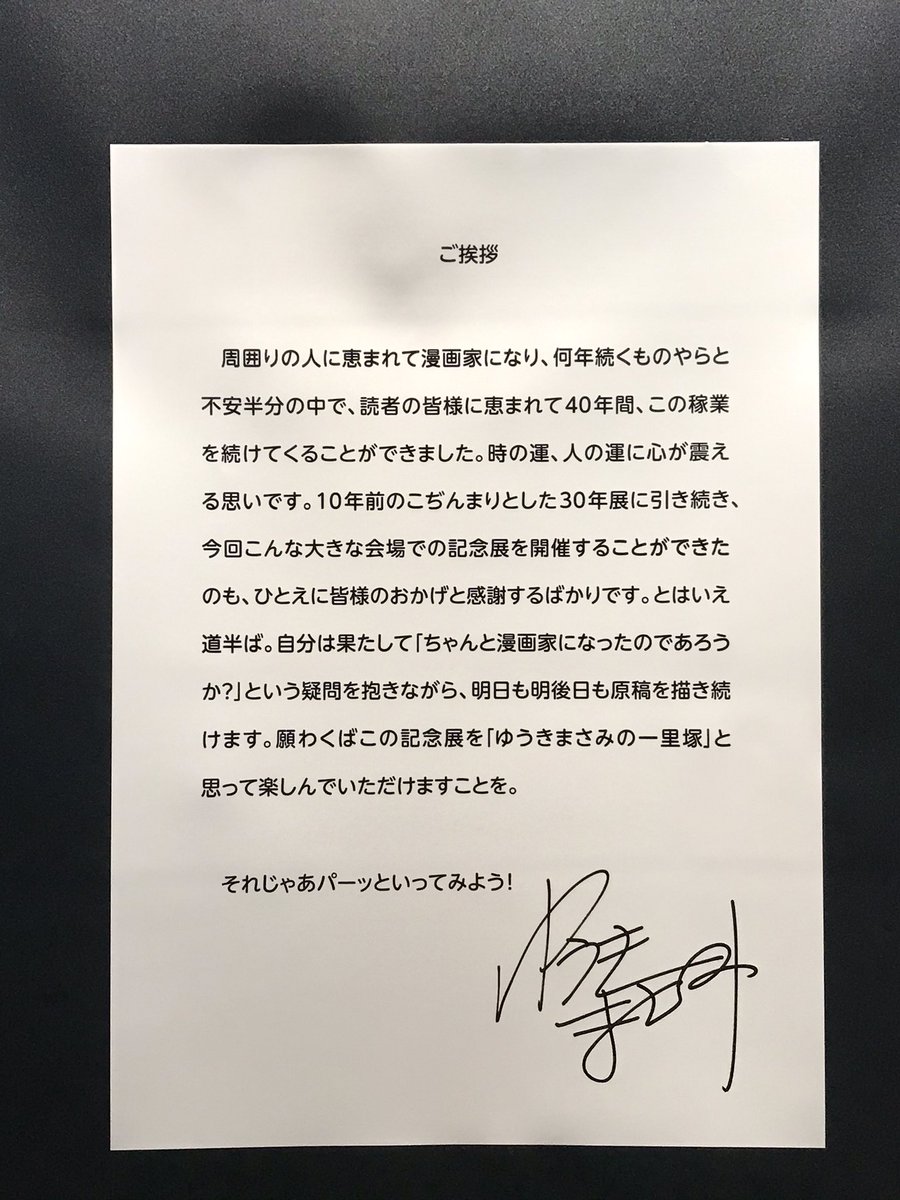 ご挨拶
周囲りの人に恵まれて漫画家になり、何年続くものやらと
不安半分の中で、読者の皆様に恵まれて40年間、この稼業
を続けてくることができました。時の運、人の運に心が震え
る思いです。10年前のこぢんまりとした30年展に引き続き、
今回こんな大きな会場での記念展を開催することができた
のも、ひとえに皆様のおかげと感謝するばかりです。とはいえ
道半ば。自分は果たして「ちゃんと漫画家になったのであろう
か?」という疑問を抱きながら、明日も明後日も原稿を描き続
けます。願わくばこの記念展を「ゆうきまさみの一里塚」と
思って楽しんでいただけますことを。
それじゃあパーッといってみよう!
ゆうき
まさみ